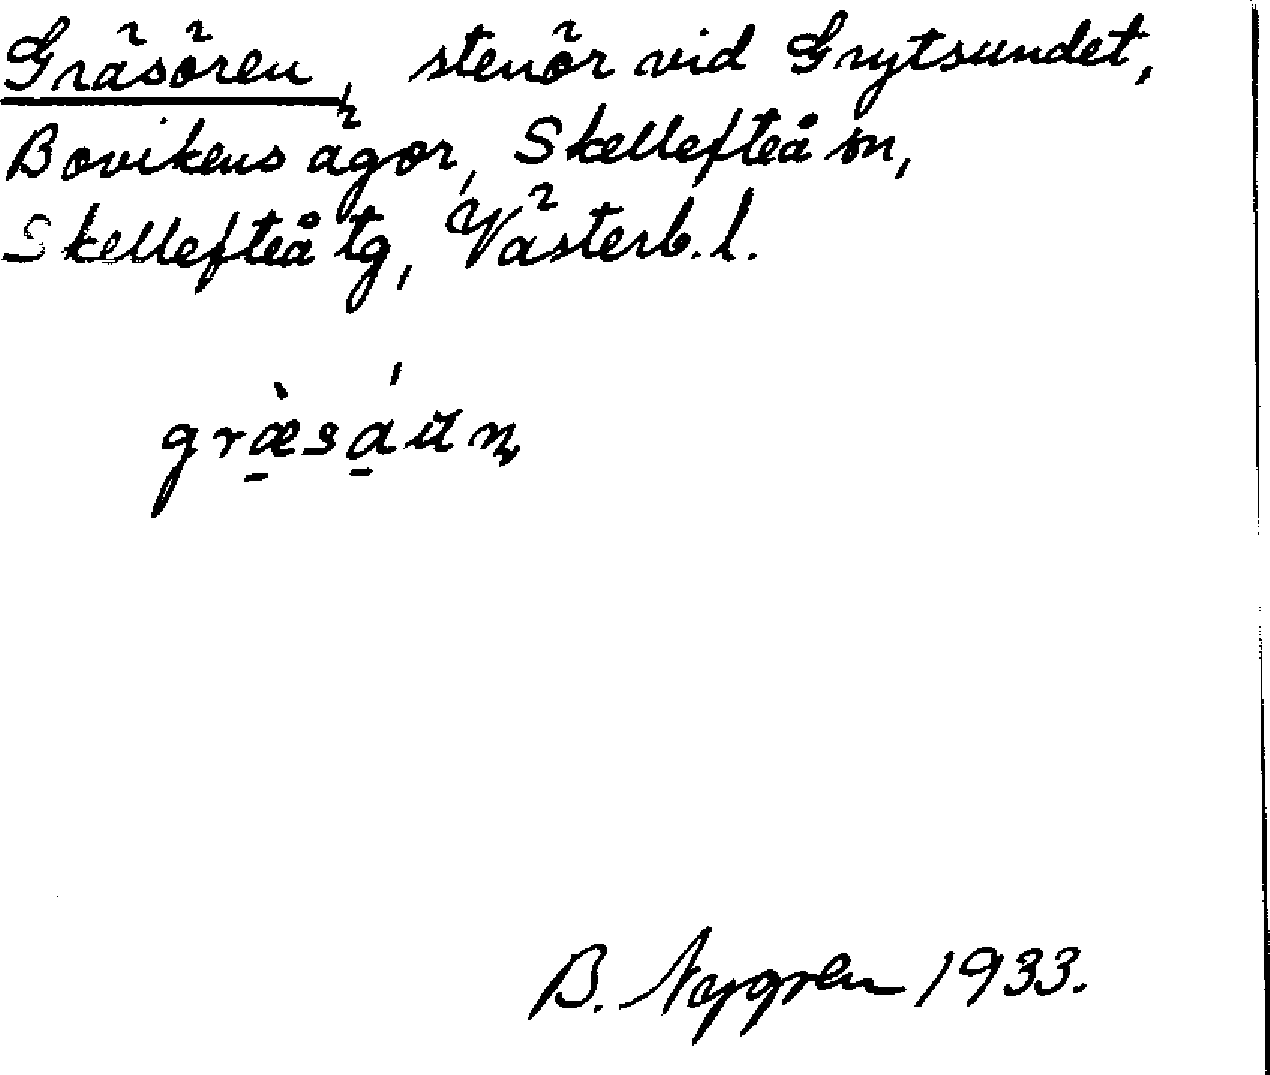 Gräsören, stenör vid Grytsundet,
Bovikens ägor, Skellefteå sn,
Skellefteå tg, Västerb. l.
græ̠̀sá̠ŭn̥
B. Nygren 1933.